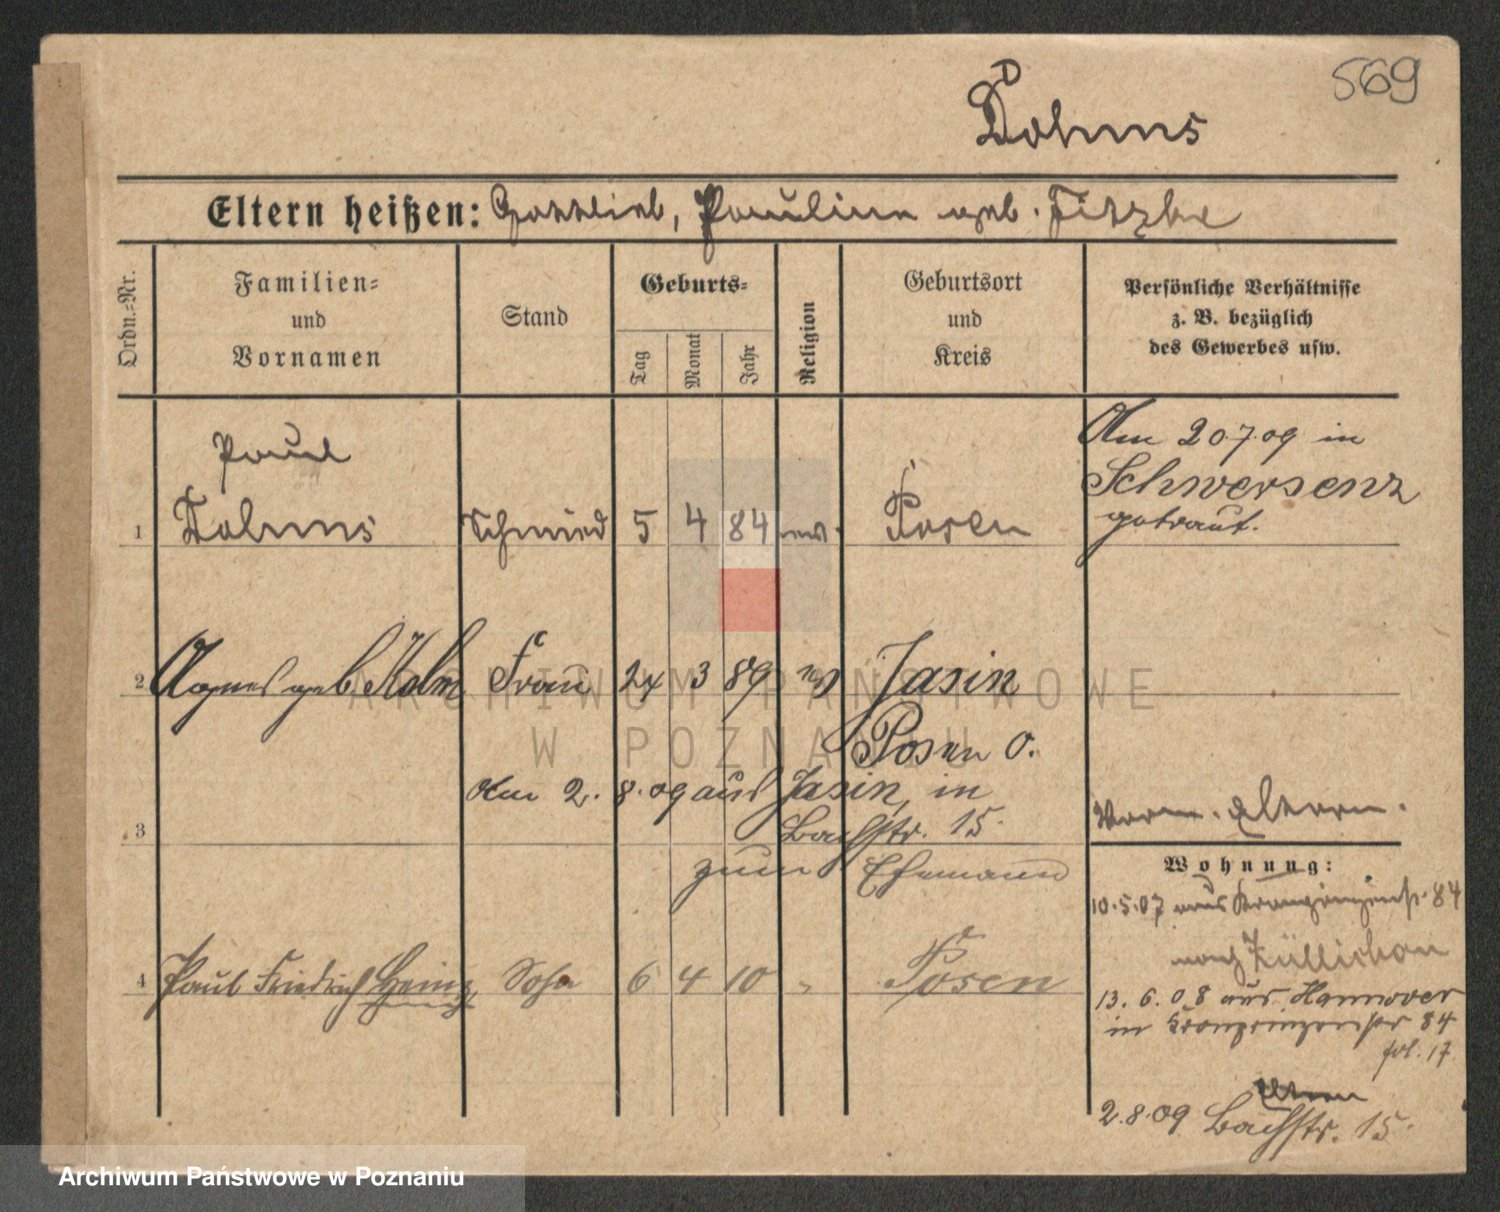 569
Dohms
Eltern heißen: Gottlieb, Pauline geb. Fitzke
Ordn.-Nr.
Familien-
und
Vornamen
Stand
Geburts-
Tag
Monat
Jahr
Religion
Geburtsort
und
Kreis
Persönliche Verhältnisse
z. B. bezüglich
des Gewerbes usw.
Paul
1 Dohms Schmied 5 4 84 ev. Posen
Am 20.7.09 in
Schwersenz
getraut.
2 Agnes geb. Kolm Frau 24 3 89 ev Jasin
Posen O.
Am 2. 8. 09 aus Jasin, in
3 Bachstr. 15.
zum Ehemann
4 Paul Friedrich Heinz, Sohn 6 4 10 " Posen
Eltern.
Wohnung:
10.5.07 aus Kronprinzenstr. 84
nach Züllichau
13. 6. 08 aus Hannover
in Kronprinzenstr 84
fol. 17.
Eltern
2.8.09 Bachstr. 15.
ARCHIWUM PAŃSTWOWE
W POZNANIU
Archiwum Państwowe w Poznaniu